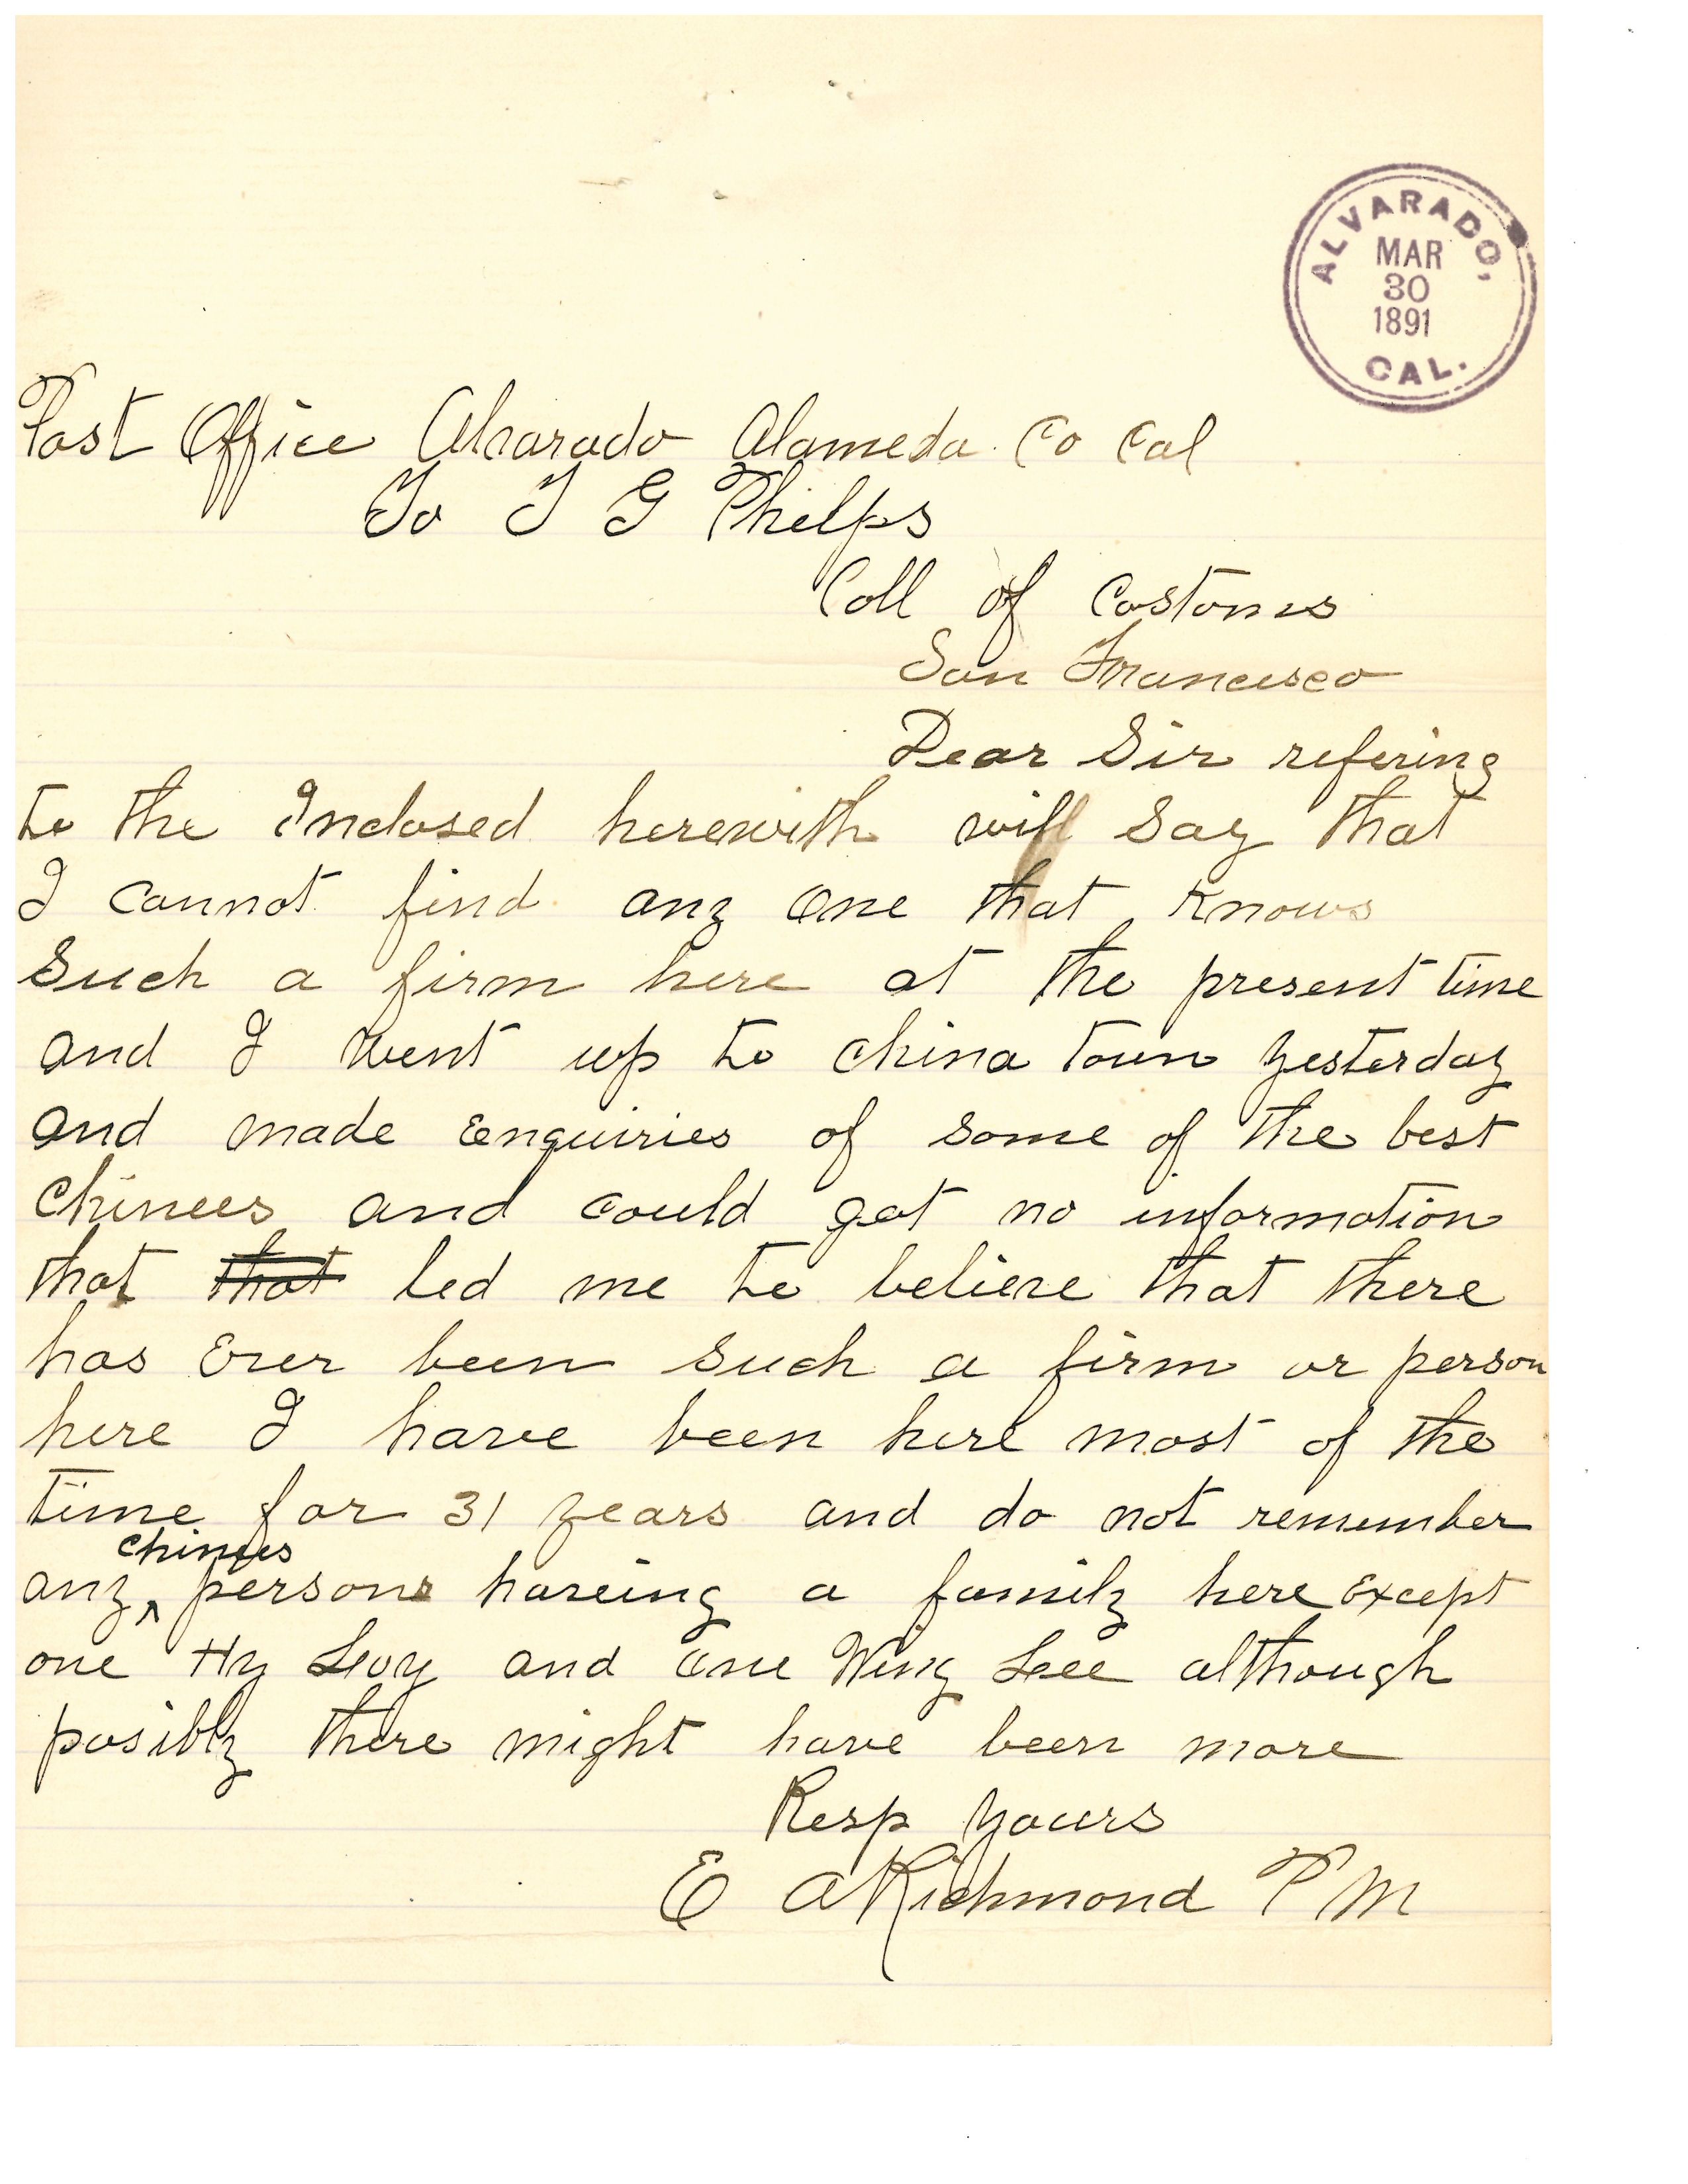 ALVARADO,
MAR
30
1891
CAL.
Post Office Alvarado Alameda Co Cal
To T G Phelps
Coll of Costoms
San Francisco
Dear Sir refering
to the Inclosed herewith will say that
I cannot find any one that knows
Such a firm here at the present time
and I went up to china town yesterday
and made enquiries of some of the best
chinees and could get no information
that that led me to believe that there
has Ever been such a firm or person
here I have been here most of the
time for 31 years and do not remember
chinees
any persons haveing a family here Except
one Hy Loy and one Wing Lee although
posibly there might have been more
Resp yours
E A Richmond P M